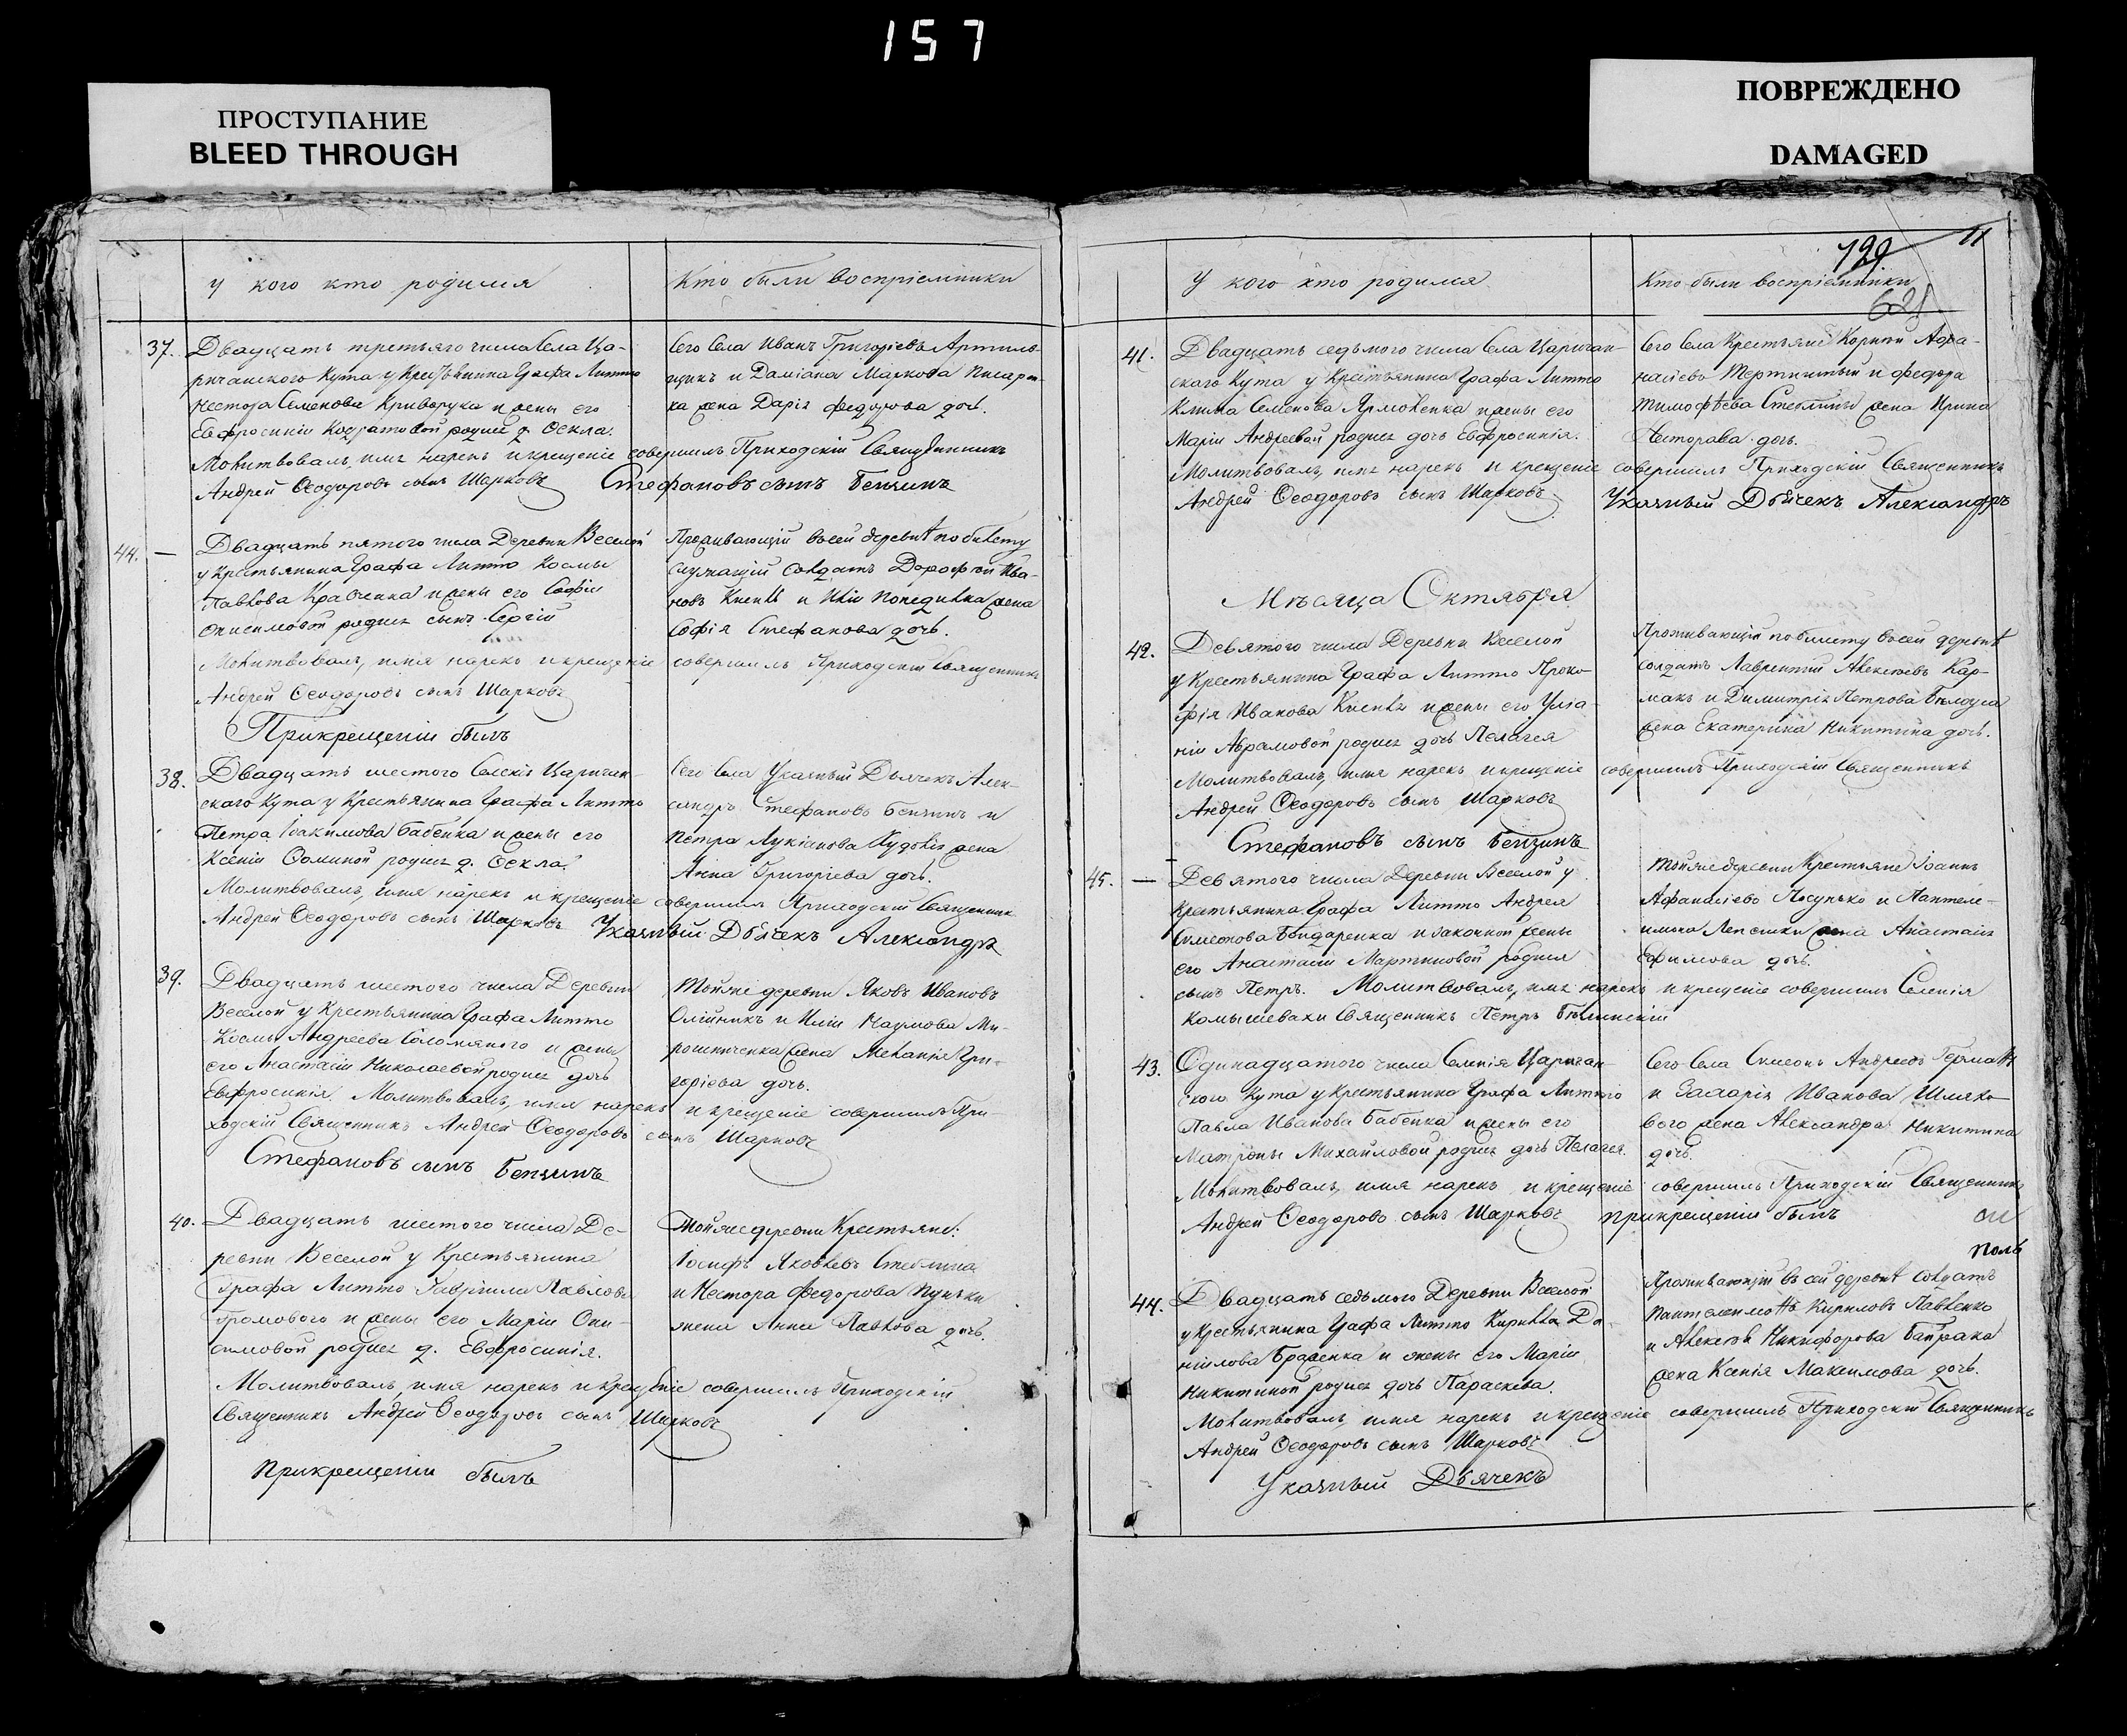 157
ПРОСТУПАНИЕ
BLEED THROUGH
ПОВРЕЖДЕНО
DAMAGED
у кого кто родился
Кто были воспріемники
37.
Двадцать третьяго числа Села Ца-
ричанского Кута у Крестьянина Графа Литто
Нестора Семенова Криворука и жены его
Евфросиніи Кодратовой родилъ д. Ѳекла.
Молитвовалъ, имя нарекъ и крещеніе совершилъ Приходскій Священникъ
Андрей Ѳеодоровъ сынъ Шарковъ
Стефановъ сынъ Бензинъ
Сего Села Иванъ Григоріевъ
и Даміана Маркова Писарен-
ка жена Дарія Федорова дочь.
44. —
Двадцать пятого числа Деревни Веселой
у Крестьянина Графа Литто Космы
Павлова Кравченка и жены его Софіи
Онисимовой родилъ сынъ Сергій
Молитвовалъ, имя нарекъ и крещеніе совершилъ Приходскій Священникъ
Андрей Ѳеодоровъ сынъ Шарковъ
Прикрещеніи былъ
Проживающій въ сей деревнѣ по билету
служащій солдатъ Дорофей Ива-
новъ и Иліи жена
Софія Стефанова дочь.
38.
Двадцать шестого Селенія Царичан-
скаго Кута у Крестьянина Графа Литто
Петра Іоакимова Бабенка и жены его
Ксеніи Ѳоминой родилъ д. Ѳекла.
Молитвовалъ, имя нарекъ и крещеніе совершилъ Приходскій Священникъ
Андрей Ѳеодоровъ сынъ Шарковъ Указный Дьячекъ Александръ
Сего Села Указный Дьячекъ Алек-
сандръ Стефановъ Бензинъ и
Петра Лукіанова жена
Анна Григоріева дочь.
39.
Двадцать шестого числа Деревни
Веселой у Крестьянина Графа Литто
Космы Андреева Соломяного и жены
его Анастасіи Николаевой родилъ дочь
Евфросинія. Молитвовалъ, имя нарекъ и крещеніе совершилъ При-
ходскій Священникъ Андрей Ѳеодоровъ сынъ Шарковъ
Стефановъ сынъ Бензинъ
Тойже деревни Яковъ Ивановъ
Олійникъ и Иліи Наумова Ми-
рошниченка жена Меланія Гри-
горіева дочь.
40.
Двадцать шестого числа Де-
ревни Веселой у Крестьянина
Графа Литто Гавріила Павлова
Громового и жены его Маріи Они-
симовой родилъ д. Евфросинія.
Молитвовалъ имя нарекъ и крещеніе совершилъ Приходскій
Священникъ Андрей Ѳеодоровъ сынъ Шарковъ
Прикрещеніи былъ
Тойже деревни Крестьяне:
Іосифъ Яковлевъ Стеблина
и Нестора Федорова
жена Анна Павлова дочь.
у кого кто родился
Кто были воспріемники
11
41.
Двадцать седьмого числа Села Царичан-
скаго Кута у Крестьянина Графа Литто
Клима Семенова Ярмоленка и жены его
Маріи Андреевой родилъ дочь Евфросинія.
Молитвовалъ, имя нарекъ и крещеніе совершилъ Приходскій Священникъ
Андрей Ѳеодоровъ сынъ Шарковъ Указный Дьячекъ Александръ
Сего Села Крестьяне Корній Афа-
насіевъ и Федора
Тимофѣева Стеблины жена Ирина
Несторова дочь.
Мѣсяца Октября
42.
Девятого числа Деревни Веселой
у Крестьянина Графа Литто Проко-
фія Иванова и жены его Уліа-
ніи Абрамовой родилъ дочь Пелагея
Молитвовалъ, имя нарекъ и крещеніе совершилъ Приходскій Священникъ
Андрей Ѳеодоровъ сынъ Шарковъ
Стефановъ сынъ Бензинъ
Проживающій по билету въ сей деревнѣ
солдатъ Лаврентій Алексѣевъ Кар-
макъ и Димитрія Петрова Бѣлоуса
жена Екатерина Никитина дочь.
45. —
Девятого числа Деревни Веселой у
Крестьянина Графа Литто Андрея
Симеонова Бондаренка и законной жены
его Анастасіи Мартиновой родился
сынъ Петръ. Молитвовалъ, имя нарекъ и крещеніе совершилъ Селенія
Комышевахи Священникъ Петръ Бѣлинскій
Тойже деревни Крестьяне Іоаннъ
Афанасіевъ и Пантеле-
имона жена Анастасія
Ефимова дочь.
43.
Одинадцатого числа Селенія Царичан-
ского Кута у Крестьянина Графа Литто
Павла Иванова Бабенка и жены его
Матроны Михайловой родилъ дочь Пелагея.
Молитвовалъ, имя нарекъ и крещеніе совершилъ Приходскій Священникъ
Андрей Ѳеодоровъ сынъ Шарковъ прикрещеніи былъ
Сего Села Симеонъ Андреевъ
и Захарія Иванова Шляхо-
вого жена Александра Никитина
дочь.
44.
Двадцать седьмого Деревни Веселой
у Крестьянина Графа Литто Кирилла Да-
ніилова и жены его Маріи
Никитиной родилъ дочь Параскева.
Молитвовалъ имя нарекъ и крещеніе совершилъ Приходскій Священникъ
Андрей Ѳеодоровъ сынъ Шарковъ
Указный Дьячекъ
Проживающій въ сей деревнѣ солдатъ
Пантелеимонъ Кириловъ Павленко
и Алексѣя Никифорова Байрака
жена Ксенія Максимова дочь.